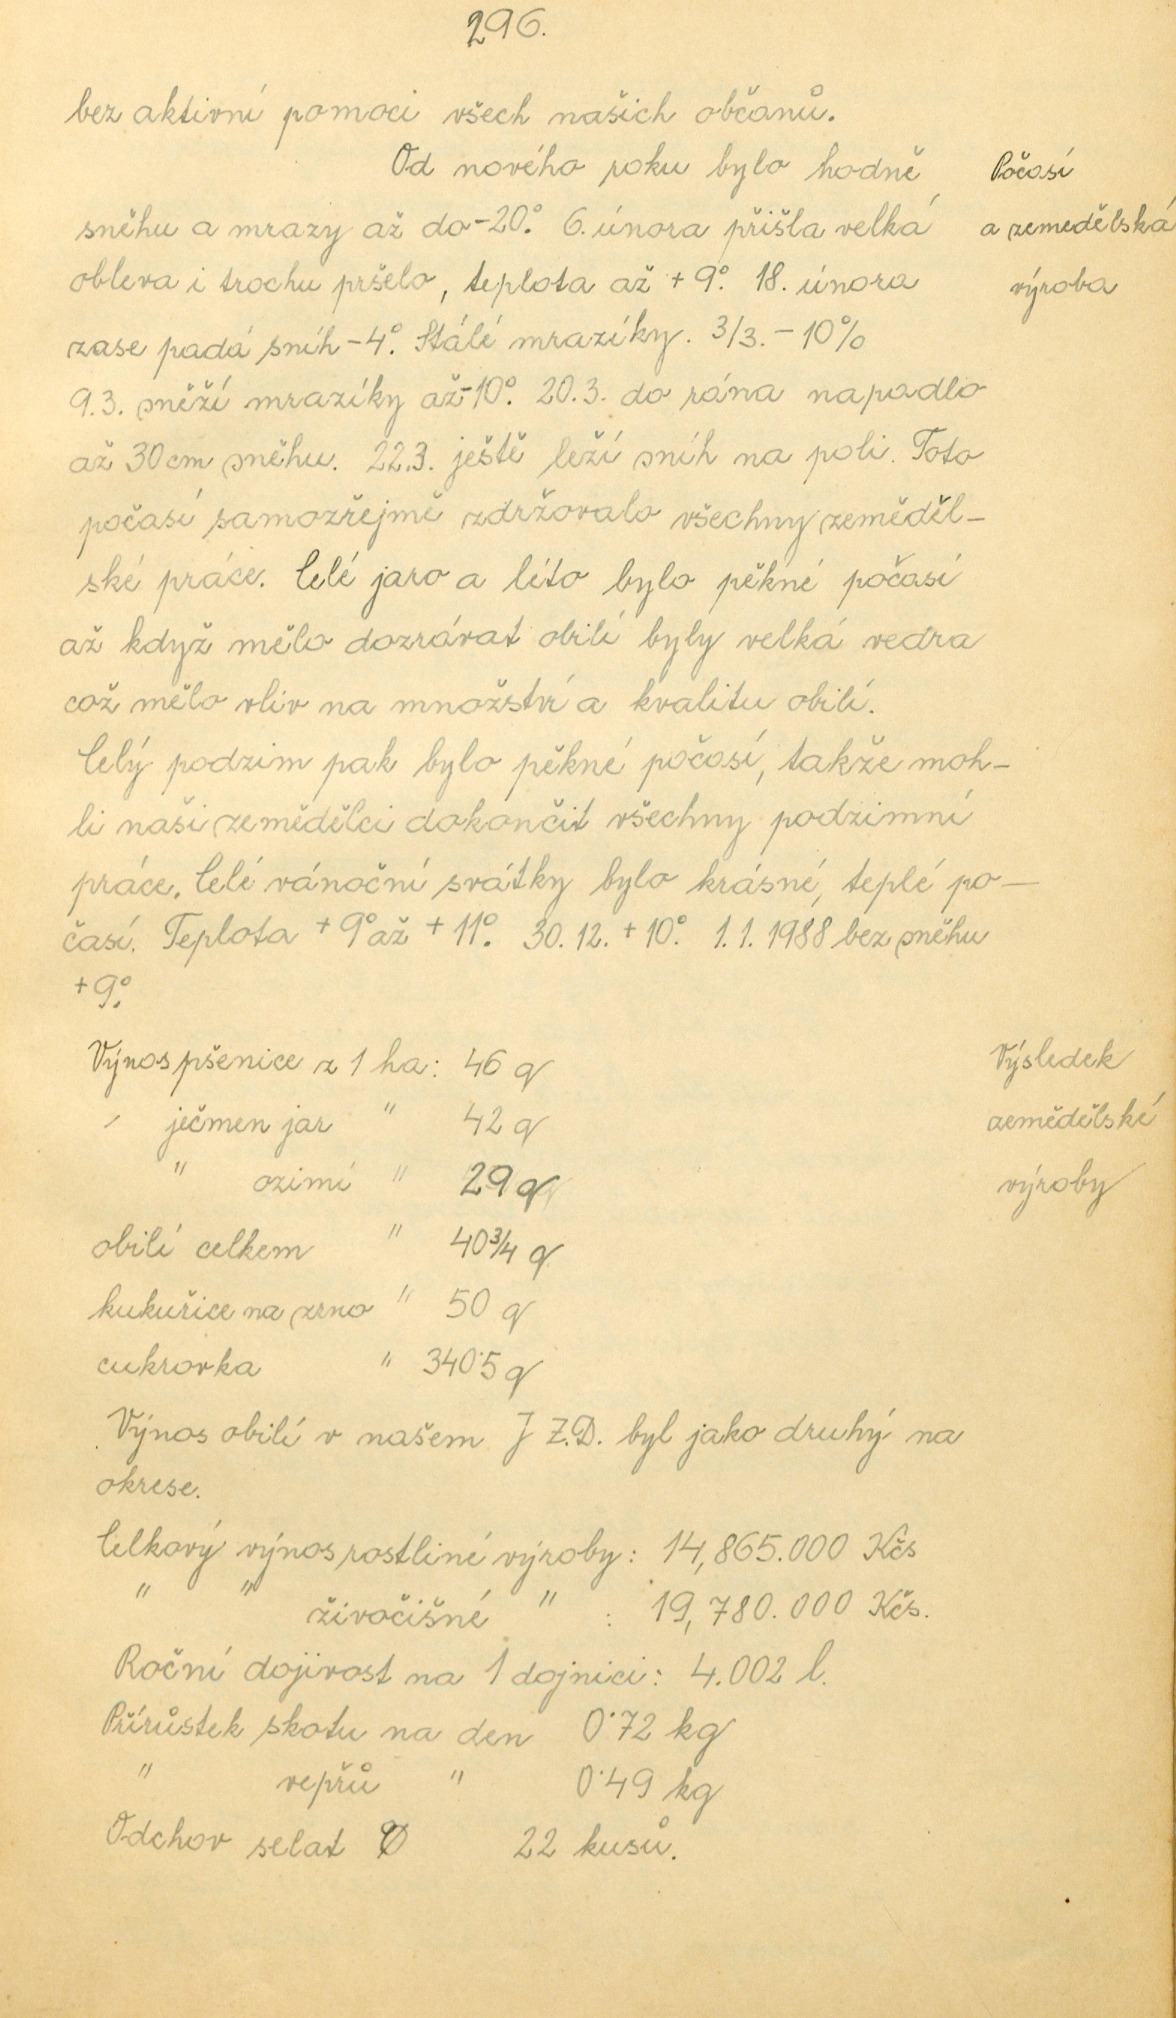 296.
bez aktivní pomoci všech našich občanů.
Od nového roku bylo hodně
Počasí
sněhu a mrazy až do -20°. 6. února přišla velká
a zemedělská
obleva i trochu pršelo, teplota až + 9°. 18. února
výroba
zase padá sníh - 4°. Stálé mrazíky. 3/3. - 10%
9.3. sněží mrazíky až -10°. 20.3. do rána napadlo
až 30 cm sněhu. 22.3. ještě leží sníh na poli. Toto
počasí samozřejmě zdržovalo všechny zeměděl-
ské práce. Celé jaro a léto bylo pěkné počasí
až když mělo dozrávat obilí byly velká vedra
což mělo vliv na množství a kvalitu obilí.
Celý podzim pak bylo pěkné počasí, takže moh-
li naši zemědělci dokončit všechny podzimní
práce. Celé vánoční svátky bylo krásné, teplé po-
časí. Teplota + 9° až + 11°. 30. 12. + 10°. 1. 1. 1988 bez sněhu
+ 9°.
Výnos pšenice z 1 ha: 46 q
Výsledek
" ječmen jar " 42 q
zemědělské
" ozimí " 29 q
výroby
obilí celkem " 40 3/4 q
kukuřice na zrno " 50 q
cukrovka " 340·5 q
Výnos obilí v našem J Z.D. byl jako druhý na
okrese.
Celkový výnos rostliné výroby: 14,865.000 Kčs
" " živočišné " : 19,780.000 Kčs.
Roční dojivost na 1 dojnici: 4.002 l.
Přírůstek skotu na den 0·72 kg
" vepřů " 0·49 kg
Odchov selat Ø 22 kusů.